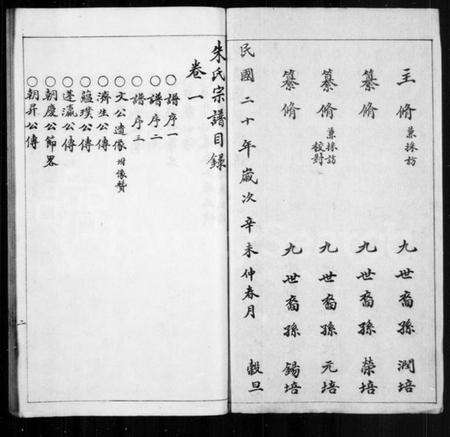 主脩 兼採訪 九世裔孫 潤培
纂脩 九世裔孫 榮培
纂脩 兼採訪 校對 九世裔孫 元培
纂脩 九世裔孫 錫培
民國二十年歲次辛未仲春月 穀旦
朱氏宗譜目錄
卷一
○譜序一
○譜序二
○譜序三
○文公遺像 附像贊
○濟生公傳
○蘊璞公傳
○蓬瀛公傳
○朝慶公節畧
○朝昇公傳